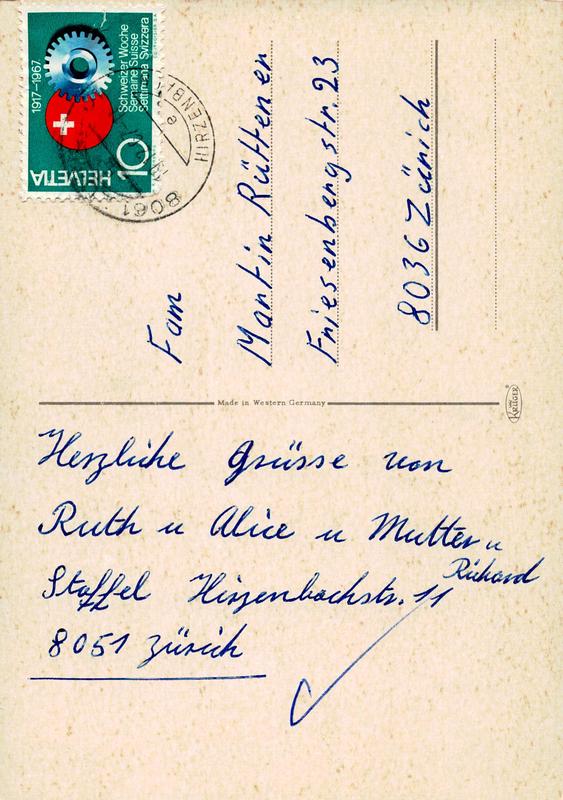 1917–1967
Schweizer Woche
Semaine Suisse
Settimana Svizzera
10
HELVETIA
HIRZENBACH
8061
Fam
Martin Rüttener
Friesenbergstr. 23
8036 Zürich
Made in Western Germany
KRÜGER
Herzliche Grüsse von
Ruth u Alice u Mutter u
Richard
Staffel Hirzenbachstr. 11
8051 Zürich